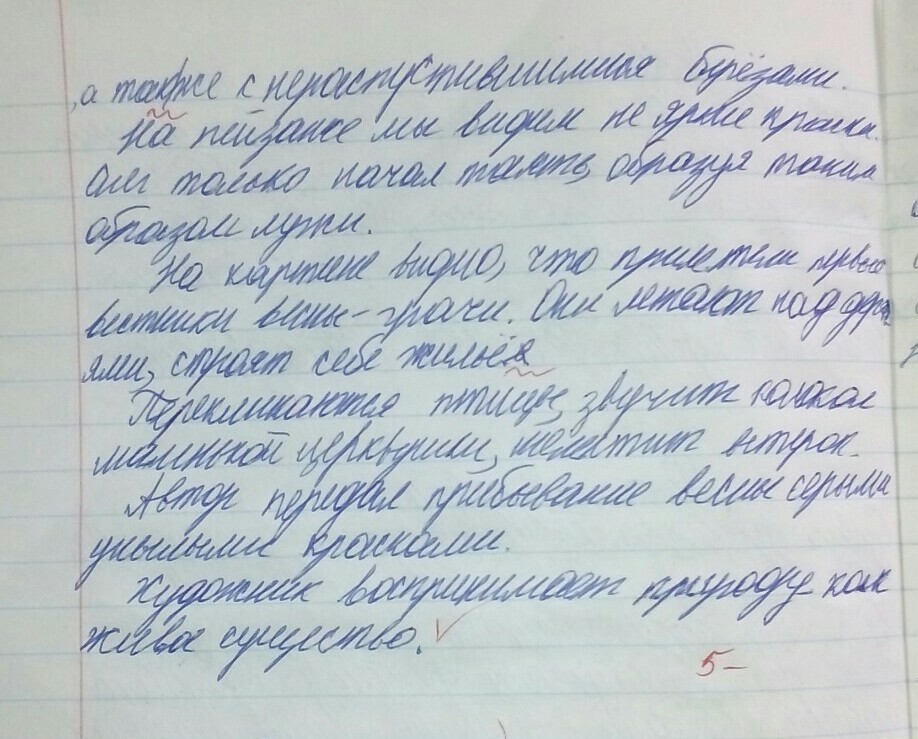 , а также с нераспустившимися берёзами.
На пейзаже мы видим не яркие краски.
Снег только начал таять, образуя таким
образом лужи.
На картине видно, что прилетели первые
вестники весны - грачи. Они летают над дерев
ями, строят себе жильё
Перекликаются птицы, звучит колокол
маленькой церквушки, шелестит ветерок.
Автор передал прибывание весны серыми
унылыми красками.
Художник воспринимает природу как
живое существо.
5-